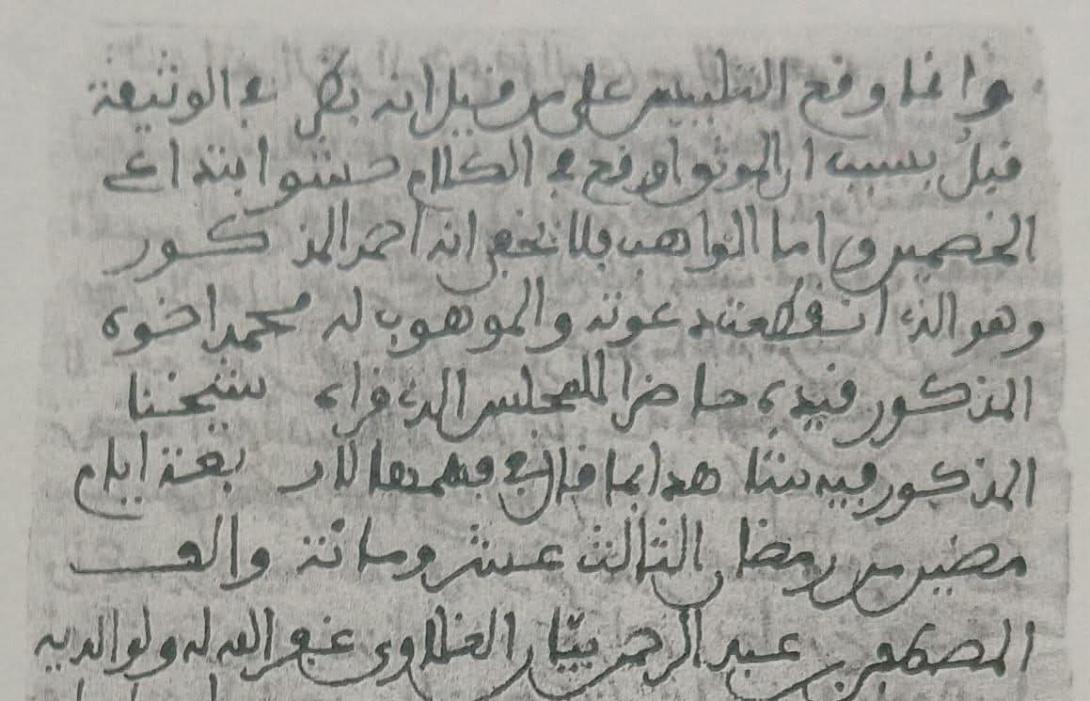 وانما وقع التلبيس على من قبل انه نظر في الوثيقة
قبل بسبب ان الموثق اوقع في الكلام حشوا ابتداعي
الخصمين واما الواهب فلا نخفى انه احمد المذكور
وهو الذي انقطعت دعوته والموهوب له محمد اخوه
المذكور فيدي حاضرا للمجلس الذي قراه شيخنا
المذكور فيه بيننا هذا بما قال في فهمها لار بعة ايام
مضين من رمضان الثالث عشر ومائة والف
المصطفى بن عبد الرحمن بيّان الغلاوي غفر الله له ولوالديه